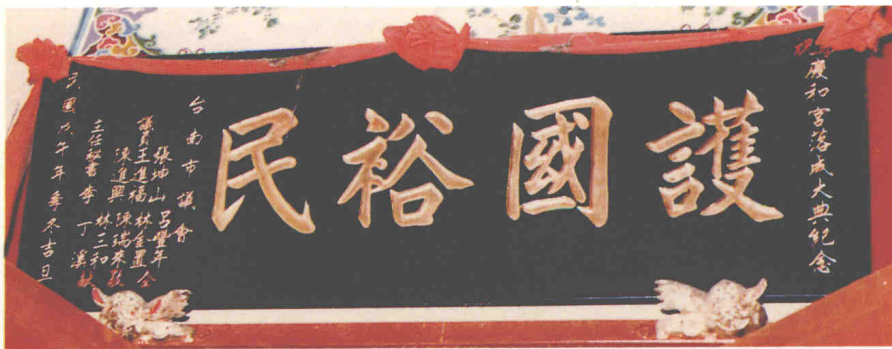 慶和宮落成大典紀念
護國裕民
台南市議會
張坤山 呂豐年
議員王進福 林金 仝
陳進興 陳瑞來 敬
林三和
主任秘書李丁溪 獻
民國戊午年季冬吉旦